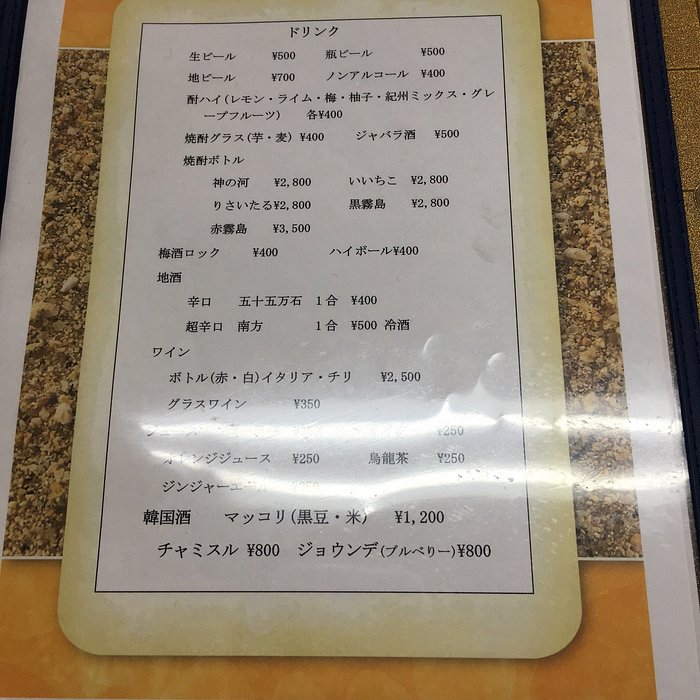 ドリンク
生ビール ¥500 瓶ビール ¥500
地ビール ¥700 ノンアルコール ¥400
酎ハイ(レモン・ライム・梅・柚子・紀州ミックス・グレ
ープフルーツ) 各¥400
焼酎グラス(芋・麦) ¥400 ジャバラ酒 ¥500
焼酎ボトル
神の河 ¥2,800 いいちこ ¥2,800
りさいたる¥2,800 黒霧島 ¥2,800
赤霧島 ¥3,500
梅酒ロック ¥400 ハイボール¥400
地酒
辛口 五十五万石 1合 ¥400
超辛口 南方 1合 ¥500 冷酒
ワイン
ボトル(赤・白)イタリア・チリ ¥2,500
グラスワイン ¥350
ジュース ¥250
オレンジジュース ¥250 烏龍茶 ¥250
ジンジャーエール
韓国酒 マッコリ(黒豆・米) ¥1,200
チャミスル ¥800 ジョウンデ(ブルベリー)¥800